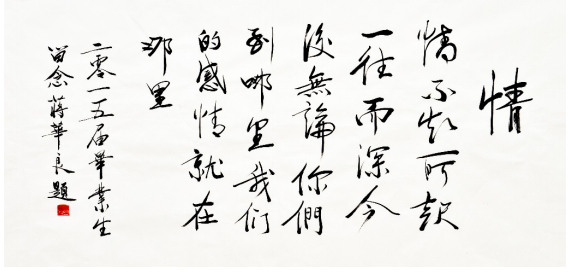 情
情不知所起
一往而深今
後無論你們
到哪里我们
的感情就在
那里
二零一五届畢業生
留念蔣華良題